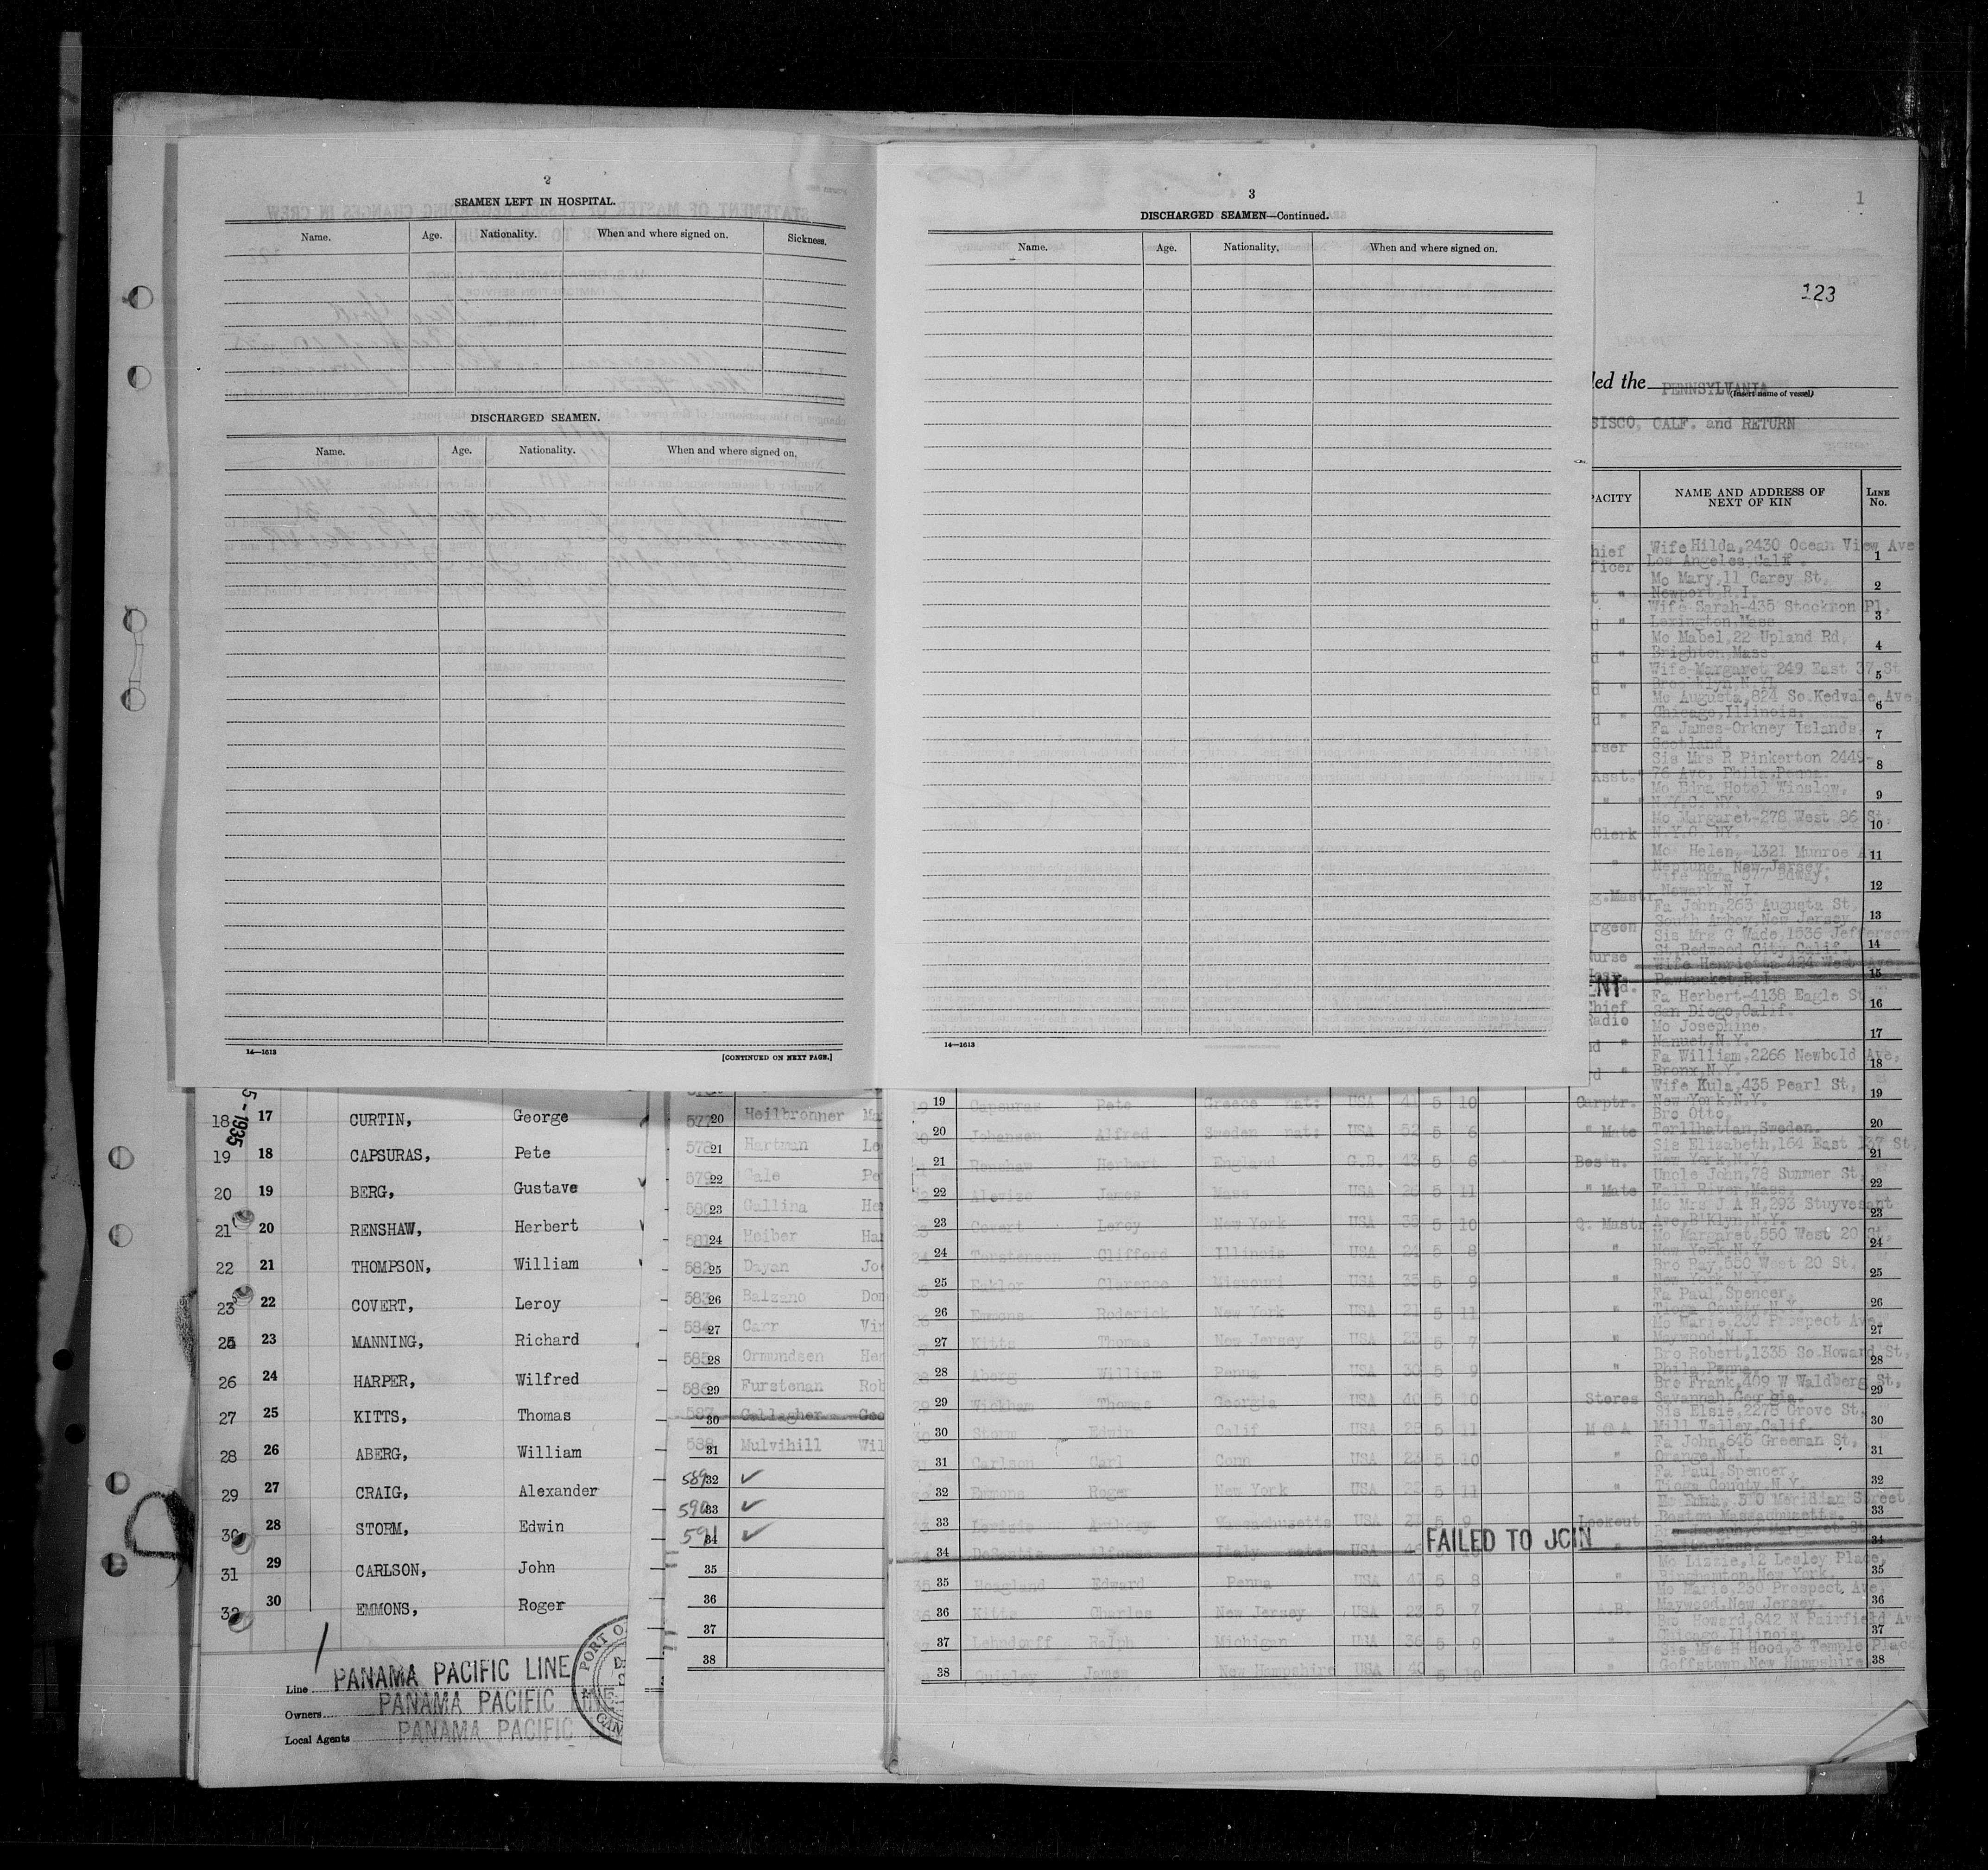 2
SEAMEN LEFT IN HOSPITAL.
Name. Age. Nationality. When and where signed on. Sickness.
DISCHARGED SEAMEN.
Name. Age. Nationality. When and where signed on.
14—1613
[CONTINUED ON NEXT PAGE.]
3
DISCHARGED SEAMEN—Continued.
Name. Age. Nationality. When and where signed on.
14—1613
1
123
led the PENNSYLVANIA
(Insert name of vessel)
SISCO, CALF. and RETURN
PACITY NAME AND ADDRESS OF NEXT OF KIN LINE No.
hief Wife Hilda, 2430 Ocean View Ave 1
ficer Los Angeles, Calif.
Mo Mary, 11 Carey St, 2
Newport, R.I.
Wife Sarah-435 Stockmon Pl, 3
Lexington, Mass
Mo Mabel, 22 Upland Rd, 4
Brighton, Mass
Wife-Margaret 249 East 37 St 5
Brooklyn, N.Y.
Mo Augusta, 824 So. Kedvale Ave, 6
Chicago, Illinois.
Fa James-Orkney Islands, 7
rser Scotland.
Sis Mrs R Pinkerton 2449- 8
Asst." 76 Ave, Phila. Penna.
Mo Edna Hotel Winslow, 9
N.Y.C. NY.
Mo Margaret-278 West 86 St. 10
Clerk N.Y.C. NY.
Mo Helen, 1321 Munroe 11
Neptune, New Jersey.
Wife Emma 577 Bdway, 12
g.Mastr Newark N.J.
Fa John, 263 Augusta St, 13
rgeon South Amboy New Jersey
Sis Mrs G Wade, 1536 Jefferson 14
St Redwood City Calif.
urse Wife Henrietta 424 West Ave 15
Pawtucket R.I.
NT
Fa Herbert-4138 Eagle St 16
hief San Diego, Calif.
Radio Mo Josephine, 17
Nanuet, N.Y.
Fa William, 2266 Newbold Ave, 18
Bronx, N.Y.
Wife Kula, 435 Pearl St, 19
New York, N.Y.
Bro Otto, 20
Torllhattan, Sweden.
Sis Elizabeth, 164 East 137 St, 21
New York, N.Y.
Uncle John, 78 Summer St, 22
Fall River, Mass.
Mo Mrs J A R, 293 Stuyvesant 23
Ave, B'Klyn, N.Y.
Mo Margaret, 550 West 20 St, 24
New York, N.Y.
Bro Ray, 550 West 20 St. 25
New York, N.Y.
Fa Paul, Spencer, 26
Tioga County, N.Y.
Mo Marie, 230 Prospect Ave, 27
Maywood, N.J.
Bro Robert, 1335 So. Howard St, 28
Phila. Penna
Bro Frank, 409 W Waldberg St, 29
Savannah, Georgia.
Sis Elsie, 2275 Grove St, 30
Mill Valley, Calif.
Fa John, 646 Greeman St, 31
Orange, N.J.
Fa Paul, Spencer, 32
Tioga County, N.Y.
370 Meridian Street, 33
Boston Massachusetts.
34
Mo Lizzie, 12 Lesley Place, 35
Binghamton, New York.
Mo Marie, 230 Prospect Ave, 36
Maywood, New Jersey.
Bro Howard, 842 N Fairfield Ave 37
Chicago, Illinois.
Sis Mrs H Hood, 3 Temple Place 38
Goffstown, New Hampshire
5 - 1935
18 17 CURTIN, George
19 18 CAPSURAS, Pete
20 19 BERG, Gustave
21 20 RENSHAW, Herbert
22 21 THOMPSON, William
23 22 COVERT, Leroy
25 23 MANNING, Richard
26 24 HARPER, Wilfred
27 25 KITTS, Thomas
28 26 ABERG, William
29 27 CRAIG, Alexander
30 28 STORM, Edwin
31 29 CARLSON, John
32 30 EMMONS, Roger
Line PANAMA PACIFIC LINE
Owners PANAMA PACIFIC LINE
Local Agents PANAMA PACIFIC
PORT O
CAN
577 20 Heilbronner Ma
578 21 Hartman Le
579 22 Gale Pe
580 23 Gallina He
581 24 Heiber Har
582 25 Dayan Jo
583 26 Balzano Dom
584 27 Carr Vin
585 28 Ormundsen Har
586 29 Furstenan Rob
587 30 Gallagher Geo
588 31 Mulvihill Wil
589 32 ✓
590 33 ✓
591 34 ✓
35
36
37
38
19 Capsuras Pete Greece nat: USA 41 5 10 Carptr.
20 Johansen Alfred Sweden nat: USA 52 5 6 " Mate
21 Renshaw Herbert England G.B. 43 5 6 Bosn.
22 Alevizo James Mass USA 26 5 11 " Mate
23 Covert Leroy New York USA 38 5 10 Q. Mastr
24 Torstensen Clifford Illinois USA 24 5 8 "
25 Eaklor Clarence Missouri USA 35 5 9 "
26 Emmons Roderick New York USA 21 5 11 "
27 Kitts Thomas New Jersey USA 23 5 7 "
28 Aberg William Penna USA 30 5 9 "
29 Wickham Thomas Georgia USA 40 5 10 Stores
30 Storm Edwin Calif USA 28 5 11 M @ A
31 Carlson Carl Conn USA 23 5 10 "
32 Emmons Roger New York USA 22 5 11 "
33 Anthony Massachusetts USA 23 5 9 Lookout
34 DeSantis Alfonso Italy nat: USA
FAILED TO JOIN
35 Hoagland Edward Penna USA 47 5 8 "
36 Kitts Charles New Jersey USA 23 5 7 A.B.
37 Lehndorff Ralph Michigan USA 36 5 9 "
38 Quigley James New Hampshire USA 49 5 10 "